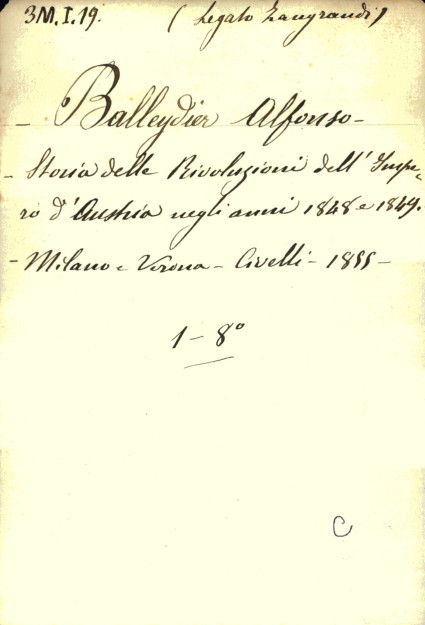 3M.I.19. (Legato Zangrandi)
- Balleydier Alfonso -
- Storia delle Rivoluzioni dell' Impe-
ro d'Austria negli anni 1848 e 1849.
- Milano e Verona - Civelli - 1855 -
1 - 8°
C